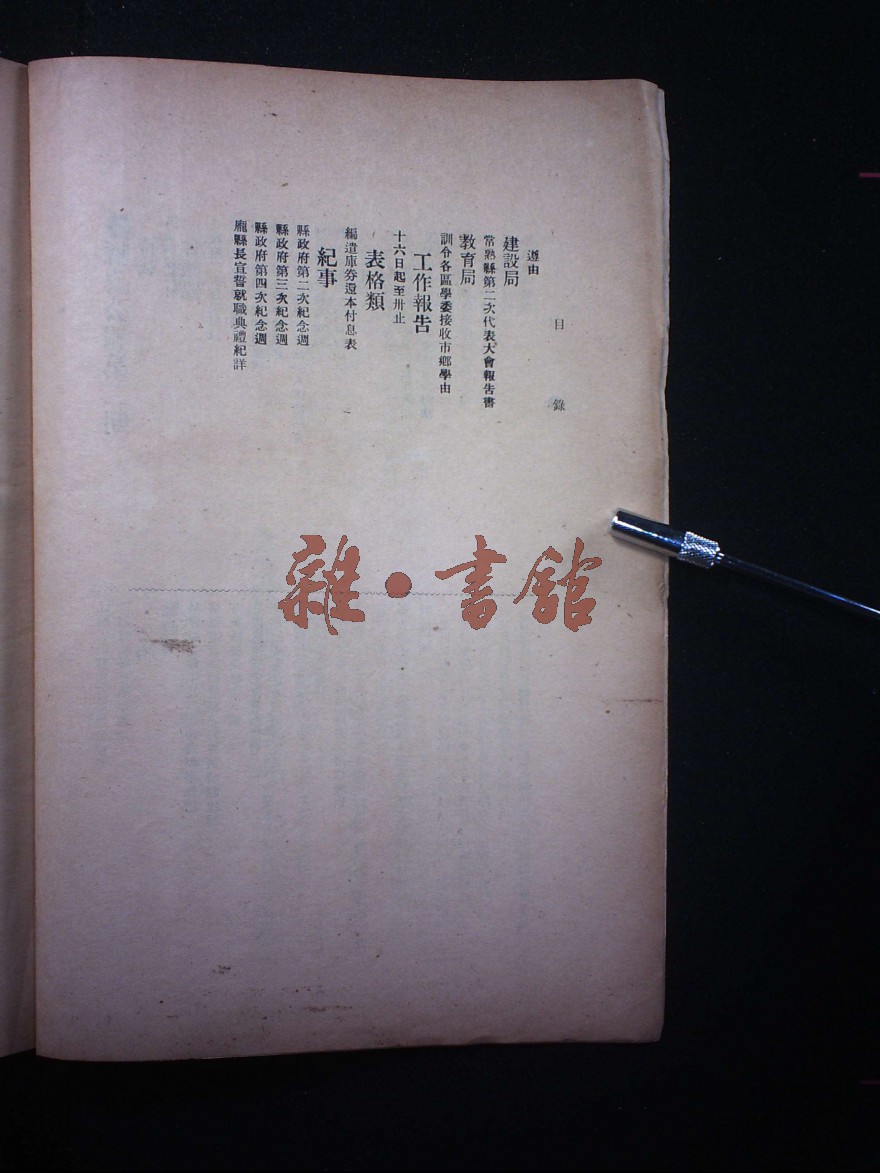 目錄
遵由
建設局
常熟縣第二次代表大會報告書
教育局
訓令各區學委接收市鄉學由
工作報告
十六日起至卅止
表格類
編遣庫券還本付息表
紀事
縣政府第二次紀念週
縣政府第三次紀念週
縣政府第四次紀念週
龐縣長宣誓就職典禮紀詳
雜·書館